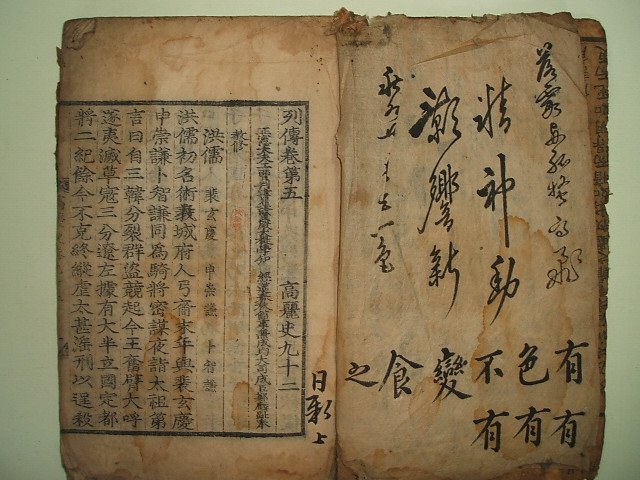 落霞與孤鶩齊飛
精神動
響新
秋水共長天一色
有有
色有
不有
變
食
之
列傳卷第五 高麗史九十二
正憲大夫工曹判書集賢殿大提學知 經筵春秋館事兼成均大司成臣鄭麟趾奉
敎修
洪儒 裴玄慶 申崇謙 卜智謙
洪儒初名術義城府人弓裔末年與裴玄慶
申崇謙卜智謙同爲騎將密謀夜詣太祖第
言曰自三韓分裂群盜競起今王奮臂大呼
遂夷滅草寇三分遼左據有大半立國定都
將二紀餘今不克終縱虐太甚淫刑以逞殺